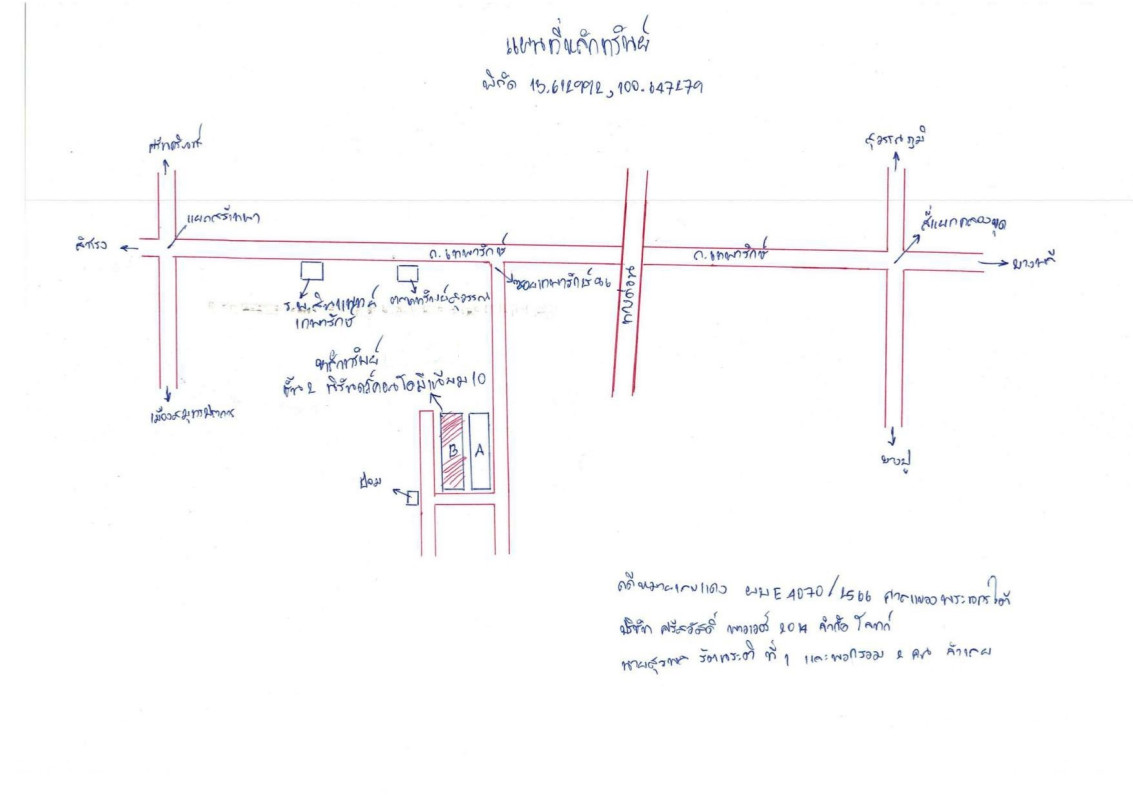 แผนที่หลักทรัพย์
พิกัด 13.612992, 100.647279
ศรีนครินทร์
สุวรรณภูมิ
แยกศรีเทพา
สี่แยกคลองขุด
สำโรง
ถ.เทพารักษ์
ถ.เทพารักษ์
บางพลี
ซอยเทพารักษ์ 66
ร.พ.สินแพทย์
เทพารักษ์
ตลาดทรัพย์สุวรรณ
ทางด่วน
หลักทรัพย์
ชั้น 2 พิรันดร์คอนโดมิเนียม 10
เมืองสมุทรปราการ
B
A
บางปู
ป้อม
คดีหมายเลขแดง ผบE 4070/2566 ศาลแขวงพระนครใต้
บริษัท ศรีสวัสดิ์ พาวเวอร์ 2014 จำกัด โจทก์
ที่ 1 และพวกรวม 2 คน จำเลย